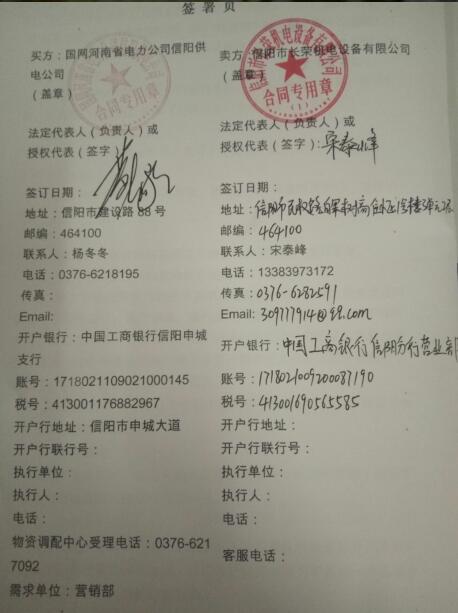 签署页
买方：国网河南省电力公司信阳供
电公司
（盖章）
法定代表人（负责人）或
授权代表（签字）
签订日期：
地址：信阳市建设路 88 号
邮编：464100
联系人：杨冬冬
电话：0376-6218195
传真：
Email:
开户银行：中国工商银行信阳申城
支行
账号：1718021109021000145
税号：413001176882967
开户行地址：信阳市申城大道
开户行联行号：
执行单位：
执行人：
电话：
物资调配中心受理电话：0376-621
7092
需求单位：营销部
卖方：信阳市长荣机电设备有限公司
（盖章）
合同专用章
（1）
法定代表人（负责人）或
授权代表（签字）：宋泰峰
签订日期：
地址：信阳市民权路
邮编：464100
联系人：宋泰峰
电话：13383973172
传真：0376-6282591
Email: 309777914@qq.com
开户银行：中国工商银行信阳分行营业部
账号：1718021009200087190
税号：413001690565585
开户行地址：
开户行联行号：
执行单位：
执行人：
电话：
客服电话：